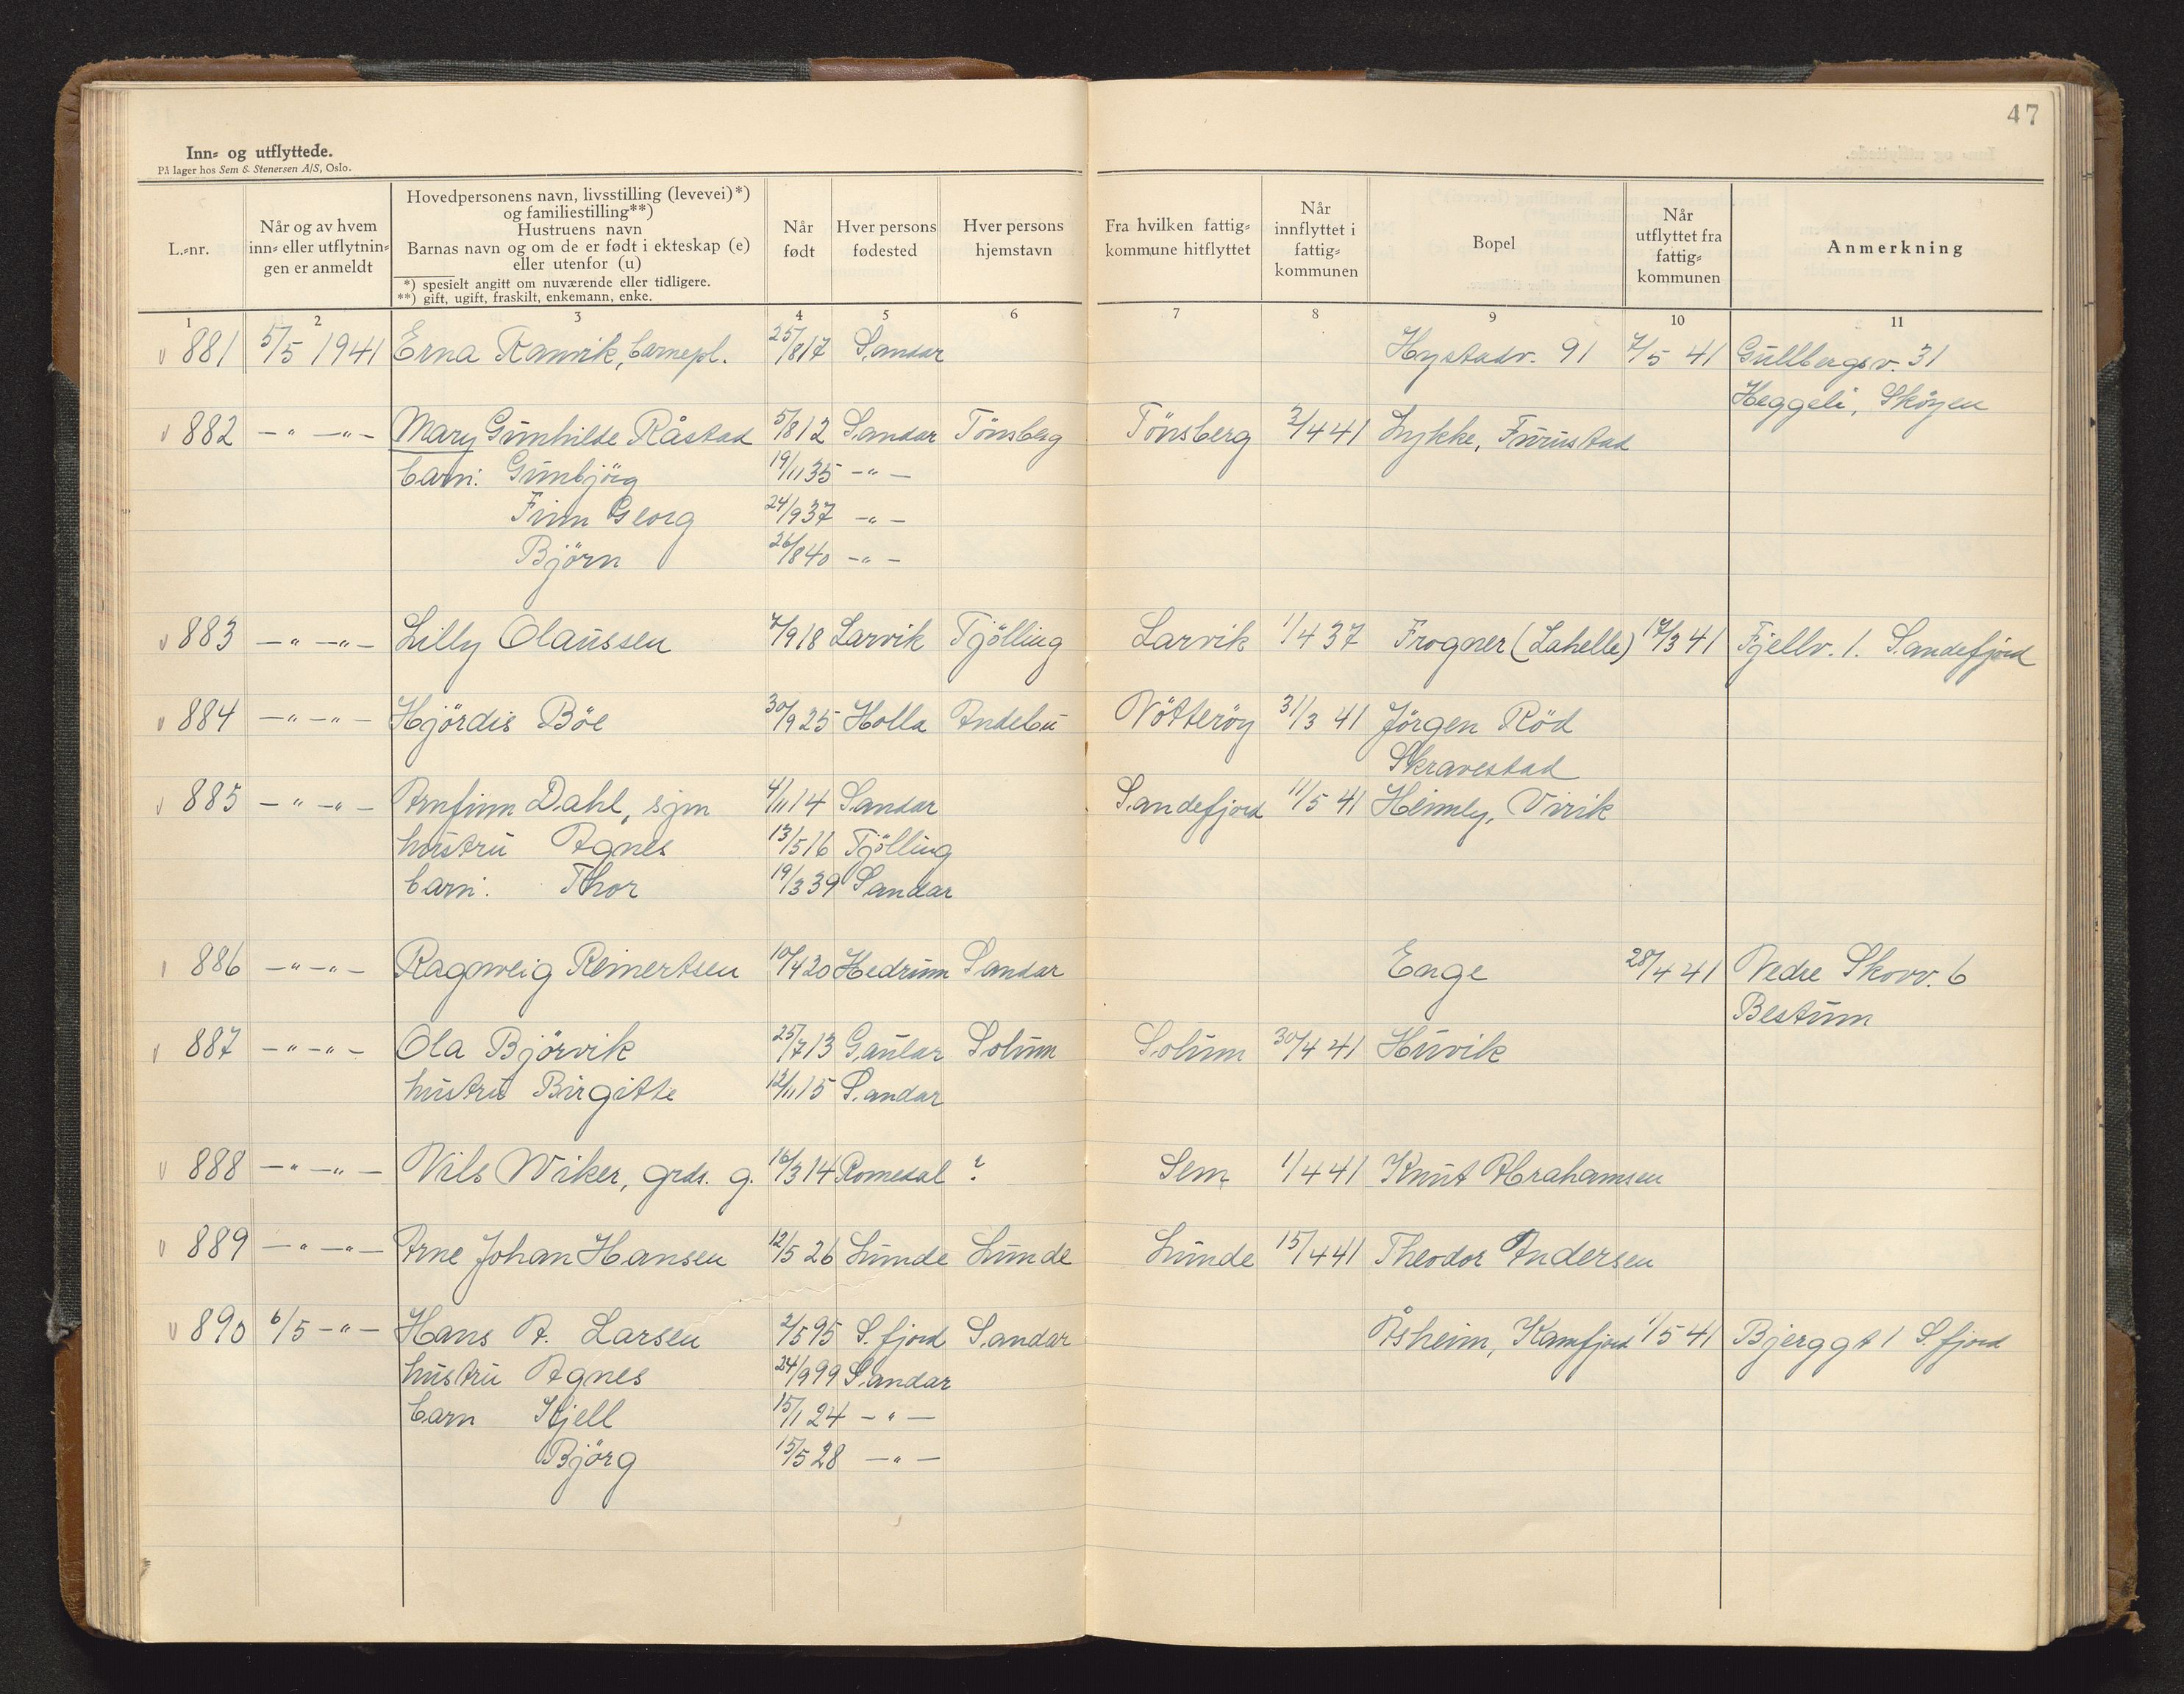 47
Inn- og utflyttede.
På lager hos Sem & Stenersen A/S, Oslo.
L.-nr.
Når og av hvem inn- eller utflytnin- gen er anmeldt
Hovedpersonens navn, livsstilling (levevei)*)
og familiestilling**)
Hustruens navn
Barnas navn og om de er født i ekteskap (e)
eller utenfor (u)
*) spesielt angitt om nuværende eller tidligere.
**) gift, ugift, fraskilt, enkemann, enke.
Når født
Hver persons fødested
Hver persons hjemstavn
Fra hvilken fattig- kommune hitflyttet
Når innflyttet i fattig- kommunen
Bopel
Når utflyttet fra fattig- kommunen
Anmerkning
1 2 3 4 5 6 7 8 9 10 11
881 5/5 1941 Erna Ranvik, barnepl. 25/817 Sandar Hystadv. 91 7/5 41 Gullbergsv. 31
Heggeli, Sköyen
882 -"- -"- Mary Gunhilde Råstad 5/812 Sandar Tönsberg Tönsberg 2/441 Lykke, Furustad
barn: Gunbjörg 19/1135 -"-
Finn Georg 24/937 -"-
Björn 26/840 -"-
883 -"- -"- Lilly Olaussen 7/918 Larvik Tjölling Larvik 1/437 Frogner (Lahelle) 17/341 Fjellv. 1. Sandefjord
884 -"- -"- Hjördis Böe 30/925 Holla Andebu Nötteröy 31/3 41 Jörgen Röd
Skravestad
885 -"- -"- Arnfinn Dahl, sjm 4/1114 Sandar Sandefjord 11/5 41 Heimly, Virik
hustru Agnes 13/516 Tjölling
barn: Thor 19/339 Sandar
886 -"- -"- Ragnveig Reinertsen 10/420 Hedrum Sandar Enge 28/4 41 Nedre Skovv. 6
Bestum
887 -"- -"- Ola Björvik 25/713 Gaular Solum Solum 30/4 41 Huvik
hustru Birgitte 12/1115 Sandar
888 -"- -"- Nils Wiker, grds. g. 16/314 Romedal ? Sem 1/441 Knut Abrahamsen
889 -"- -"- Arne Johan Hansen 12/5 26 Lunde Lunde Lunde 15/441 Theodor Andersen
890 6/5 -"- Hans A. Larsen 2/595 S.fjord Sandar Åsheim, Kamfjord 1/5 41 Bjerggt 1 S.fjord
hustru Agnes 24/999 Sandar
barn Kjell 15/1 24 -"-
Björg 15/528 -"-